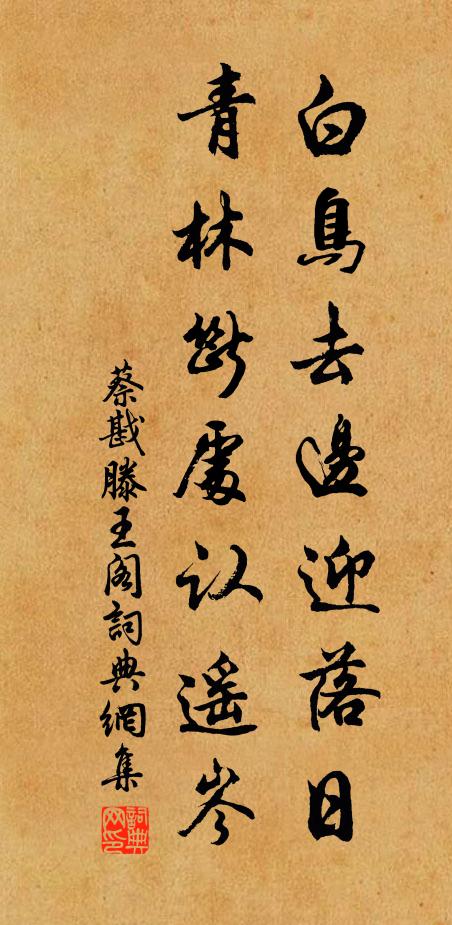 白鳥去邊迎落日
青林斷處认遥岑
蔡戡滕王阁詞典網集
詞典网印